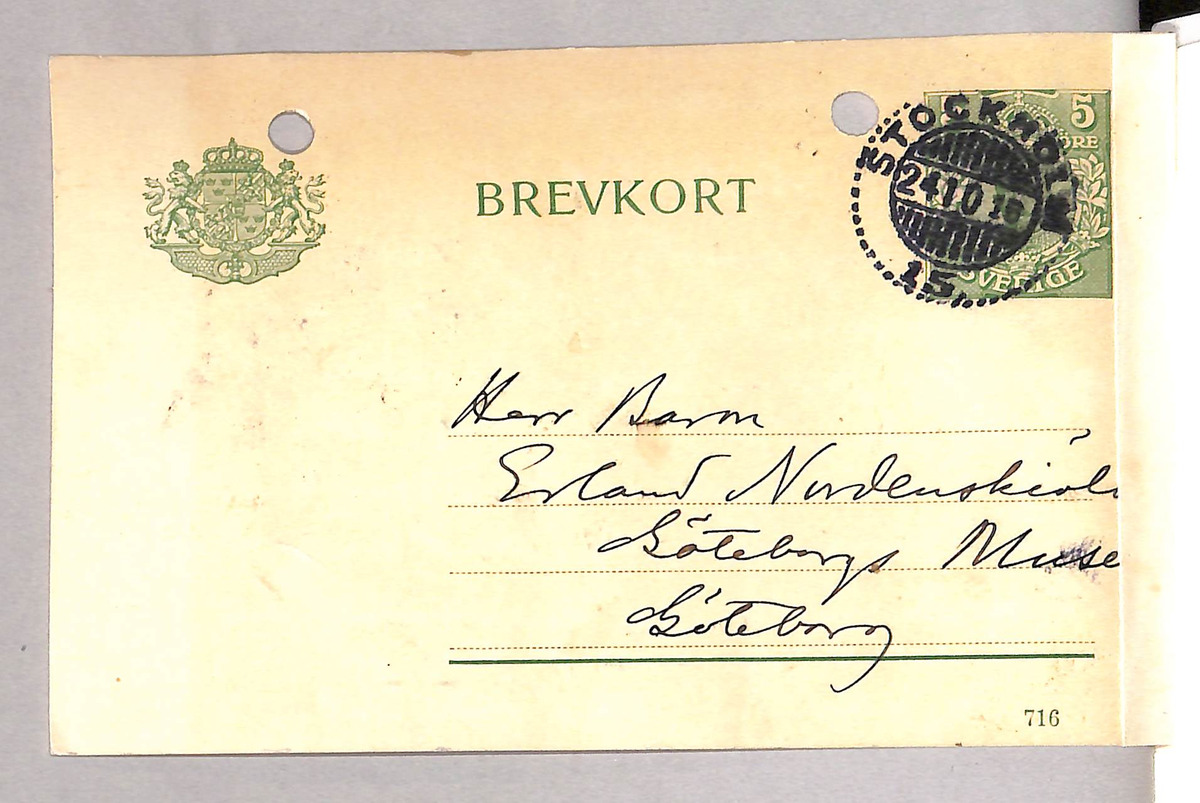 BREVKORT
5
ÖRE
SVERIGE
STOCKHOLM
24 10 16
15
Herr Baron
Erland Nordenskiöld
Göteborgs Muse
Göteborg
716